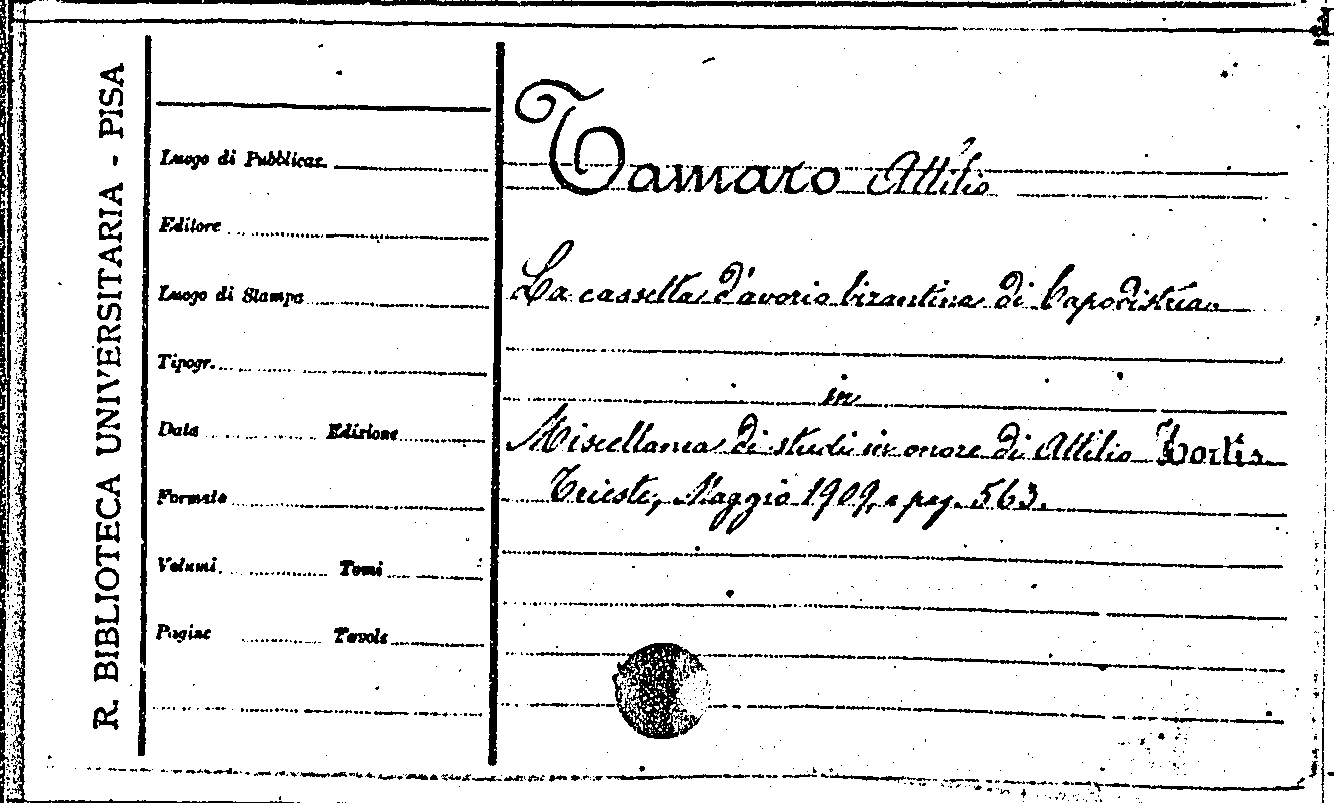 R. BIBLIOTECA UNIVERSITARIA - PISA
Luogo di Pubblicaz.
Editore
Luogo di Stampa
Tipogr.
Data Edizione
Formato
Volumi Tomi
Pagine Tavole
Tamaro Attilio
La cassetta d'avorio bizantina di Capodistria
in
Miscellanea di studi in onore di Attilio Hortis
Trieste, Maggio 1909, a pag. 563.